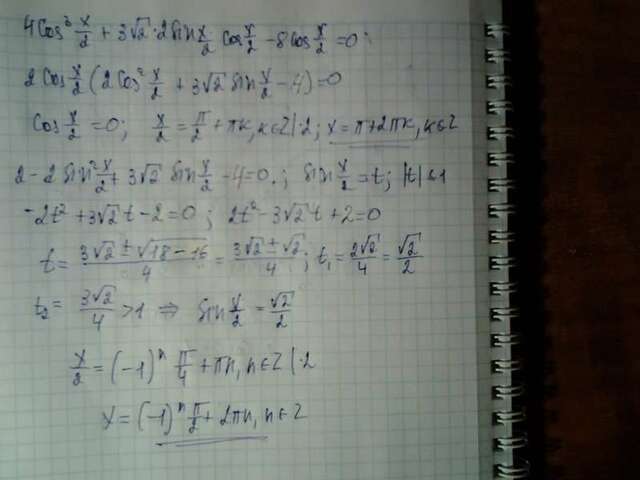 4cos³ x/2 + 3√2·2sin x/2 cos x/2 - 8cos x/2 = 0;
2cos x/2 (2cos² x/2 + 3√2 sin x/2 - 4) = 0
cos x/2 = 0; x/2 = π/2 + πk, k∈Z |·2; x = π + 2πk, k∈Z
2 - 2sin² x/2 + 3√2 sin x/2 - 4 = 0.; sin x/2 = t; |t| ≤ 1
-2t² + 3√2 t - 2 = 0; 2t² - 3√2 t + 2 = 0
t = (3√2 ± √18 - 16)/4 = (3√2 ± √2)/4; t₁ = 2√2/4 = √2/2
t₂ = 3√2/4 > 1 ⇒ sin x/2 = √2/2
x/2 = (-1)ⁿ π/4 + πn, n∈Z |·2
x = (-1)ⁿ π/2 + 2πn, n∈Z